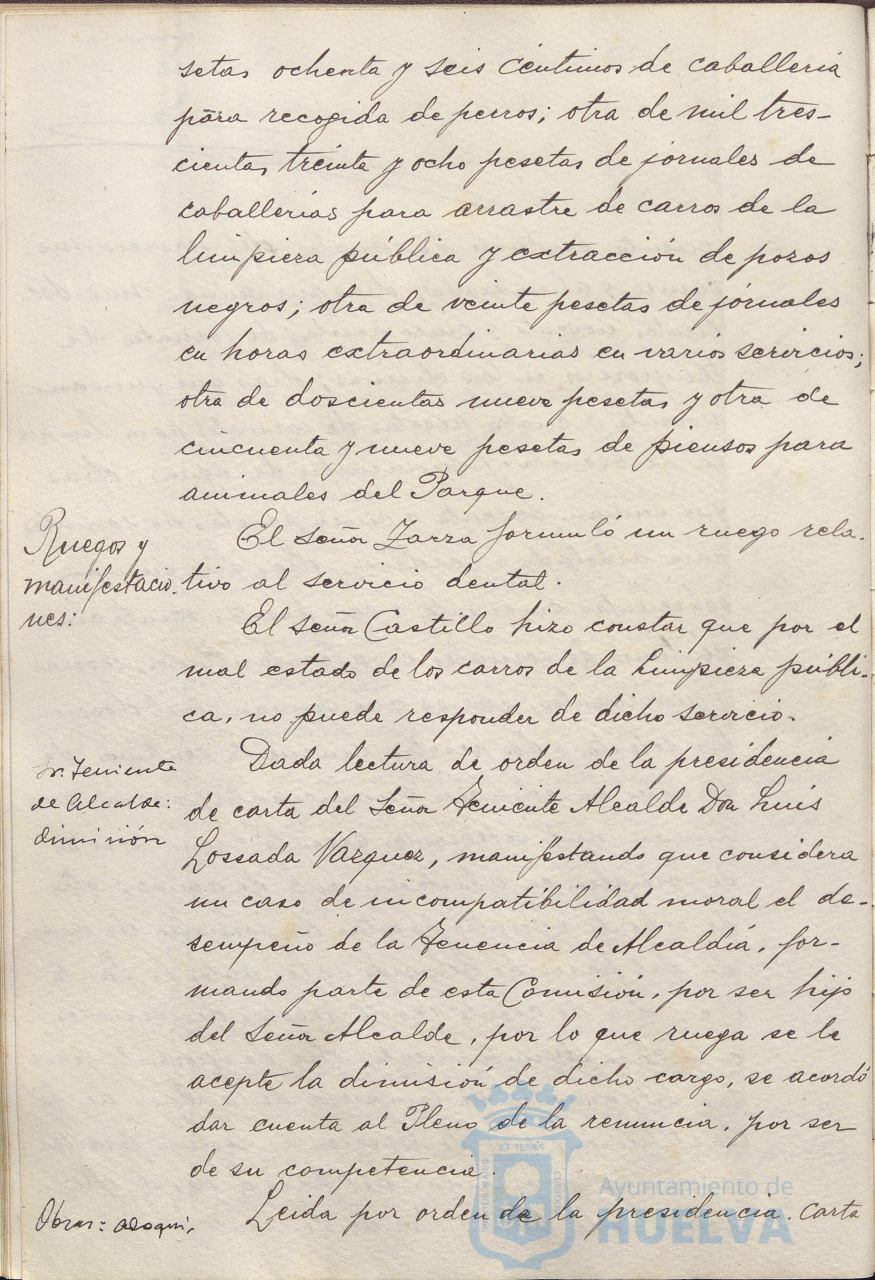 setas ochenta y seis céntimos de caballería
para recogida de perros; otra de mil tres-
cientas treinta y ocho pesetas de jornales de
caballerías para arrastre de carros de la
limpieza pública y extracción de pozos
negros; otra de veinte pesetas de jornales
en horas extraordinarias en varios servicios;
otra de doscientas nueve pesetas y otra de
cincuenta y nueve pesetas de piensos para
animales del Parque.
Ruegos y
manifestacio-
nes:
El señor Zarza formuló un ruego rela-
tivo al servicio dental.
El señor Castillo hizo constar que por el
mal estado de los carros de la Limpieza públi-
ca, no puede responder de dicho servicio.
Sr. Teniente
de Alcalde:
dimisión
Dada lectura de orden de la presidencia
de carta del Señor Teniente Alcalde Don Luis
Lossada Vazquez, manifestando que considera
un caso de incompatibilidad moral el de-
sempeño de la Tenencia de Alcaldía, for-
mando parte de esta Comisión, por ser hijo
del Señor Alcalde, por lo que ruega se le
acepte la dimisión de dicho cargo, se acordó
dar cuenta al Pleno de la renuncia, por ser
de su competencia.
Obras: adoqui-
Leida por orden de la presidencia, carta
ET TERRA
Ayuntamiento de
HUELVA